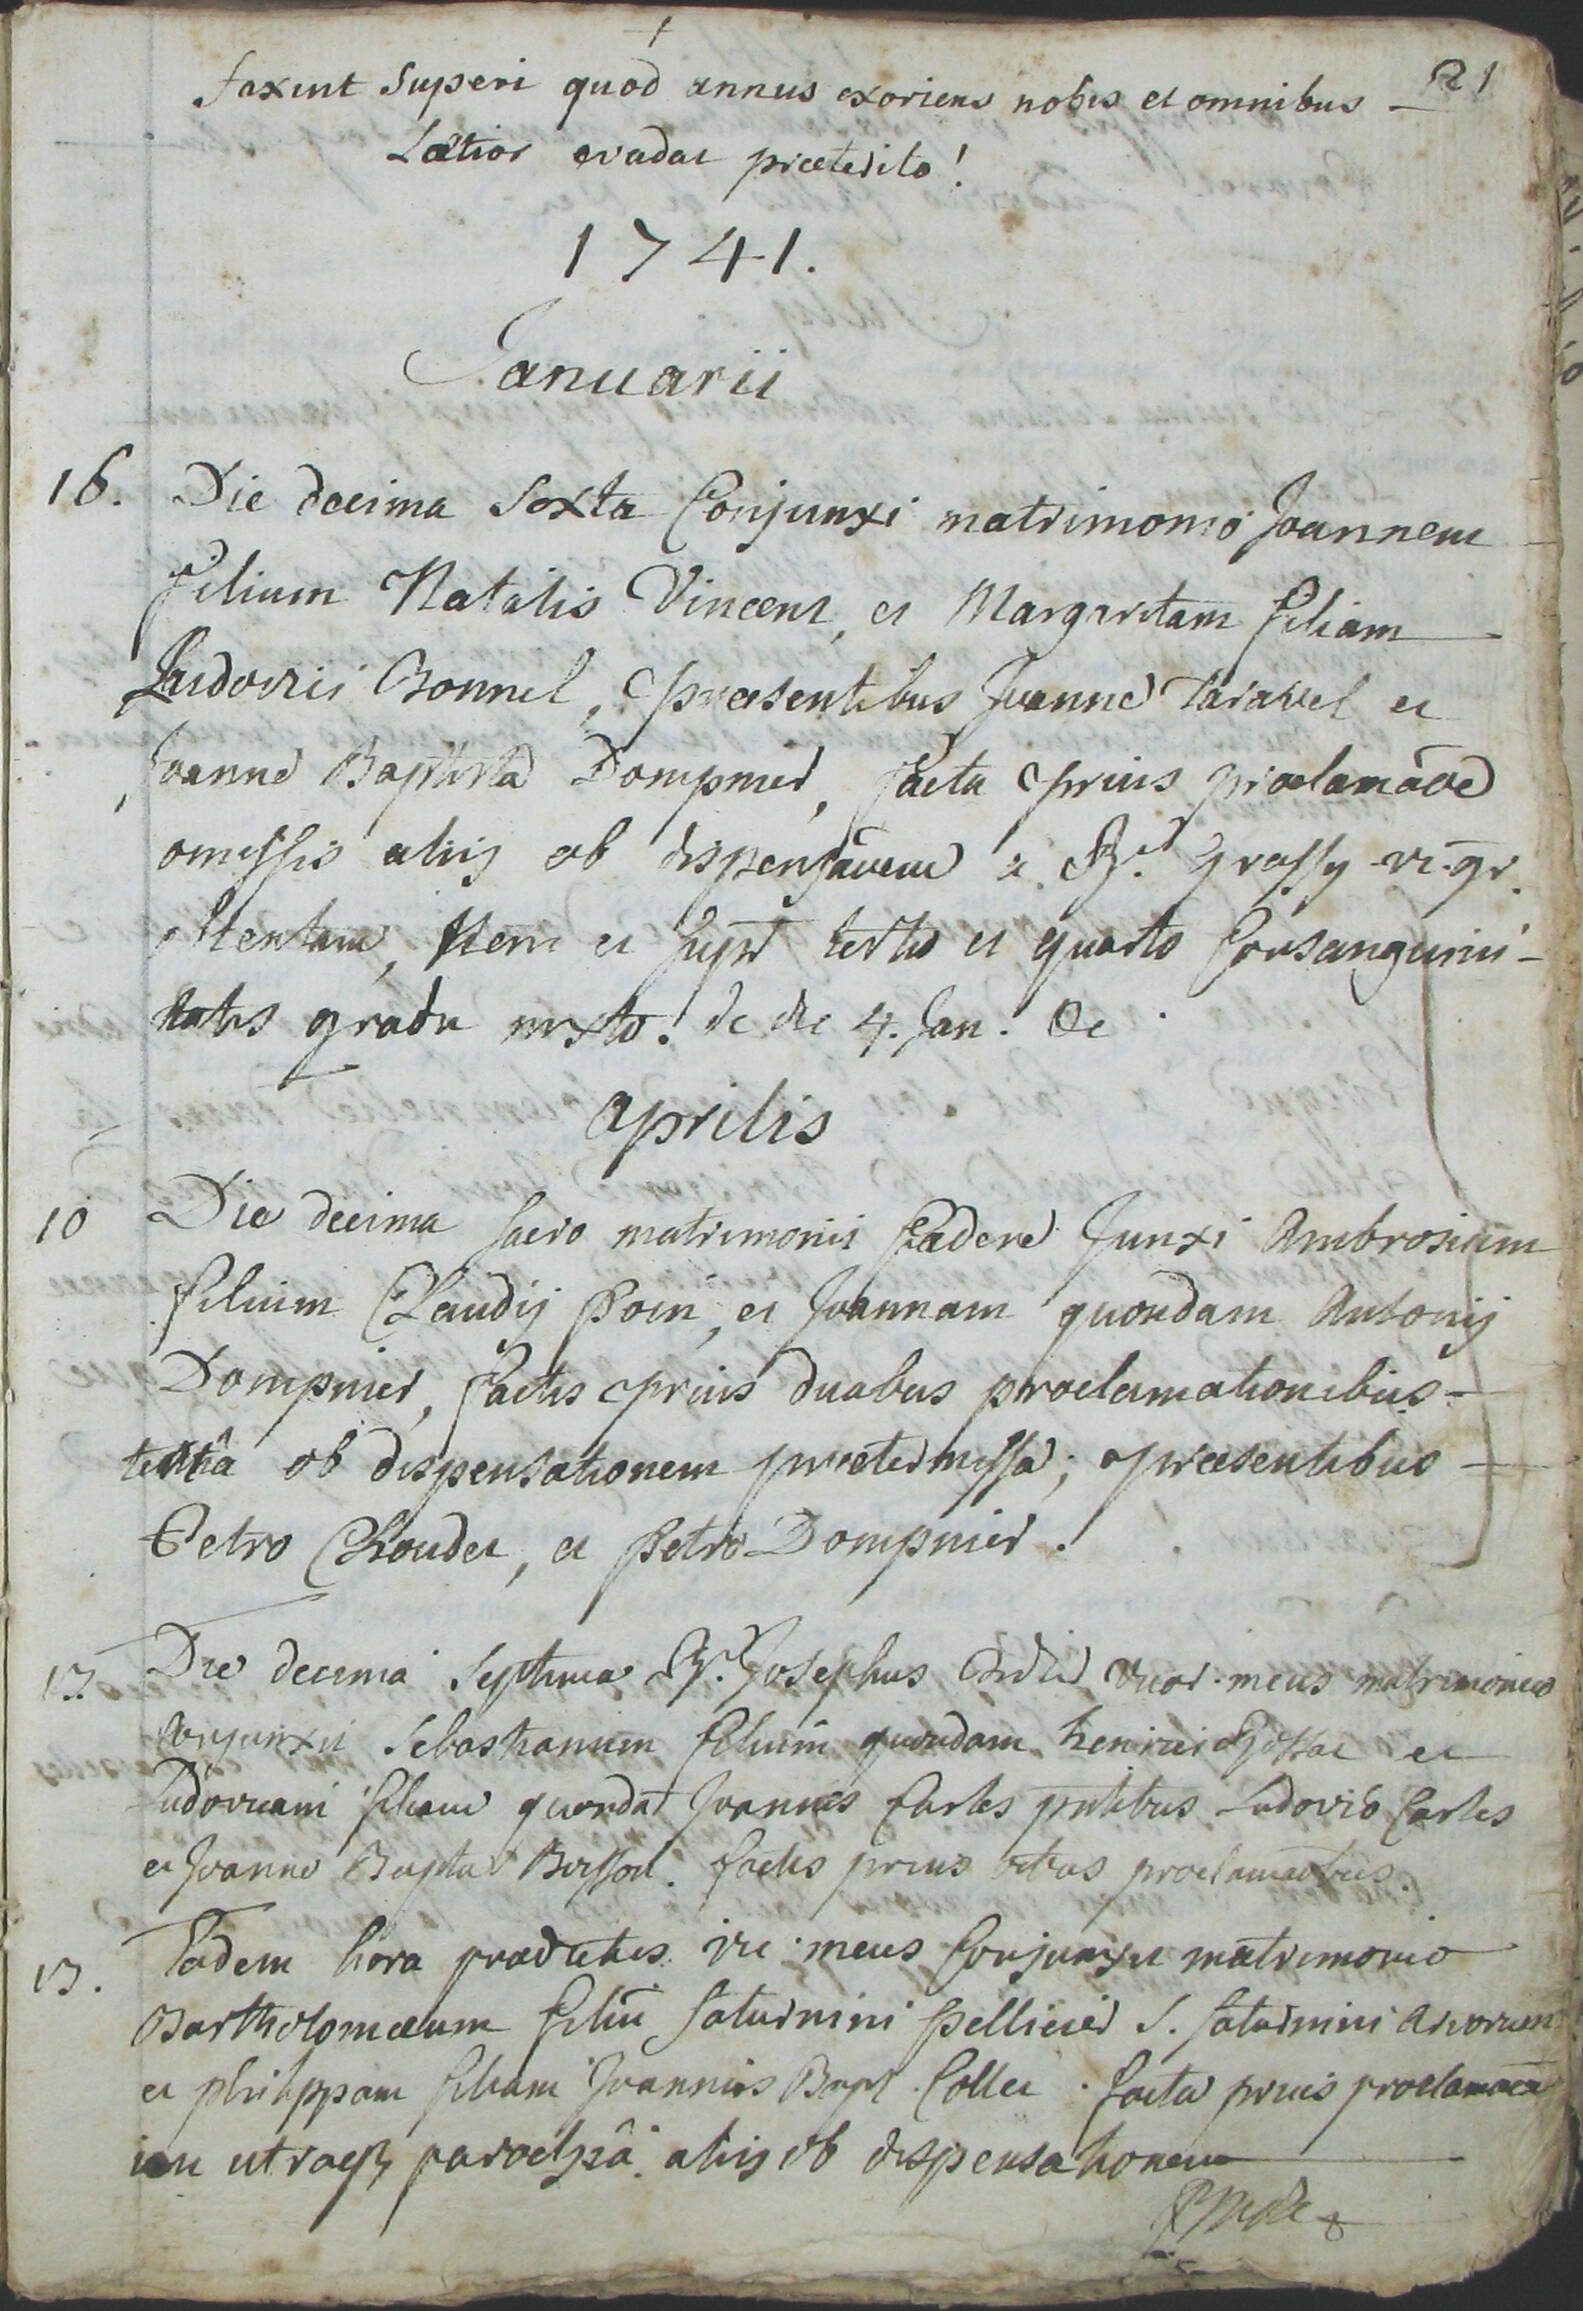 21
faxint Superi quod annus exoriens nobis et omnibus
Lætior evadat præterito!
1741.
Januarii
16. Die decima Sexta Conjunxi matrimonio Joannem
filium Natalis Vincent, et Margaritam filiam
Ludovici Bonnel, præsentibus Joanne Taravel et
Joanne Baptista Dompnier, facta prius proclamaōe
omissis aliis ob dispensāōem a Rd. Grassy vi. gr.
obtentam, Item et super tertio et quarto Consanguini-
tatis gradu mixto. de die 4. Jan. &c
aprilis
10 Die decima Sacro matrimonii fœdere Junxi Ambrosium
filium Claudij Poin, et Joannam quondam Antonij
Dompnier, factis prius duabus proclamationibus
tertiâ ob dispensationem prætermissâ; præsentibus
Petro Choudet, et Petro Dompnier.
17. Die decima Septima Rd. Josephus vicar. meus matrimonio
Conjunxit Sebastianum filium quondam henrici et
Ludovicam filiam quondā Joannis Carles pntibus Ludovico Carles
et Joanne Bapta Buisson. factis prius tribus proclamaōbus.
17. Eadem hora prædictus vic. meus Conjunxit matrimonio
Bartholomæum filiū Saturnini Pellicier S. Saturnini
et philippam filiam Joannis Bapt. Collet. facta prius proclamaōe
in utraq parochiâ, aliis ob dispensationem